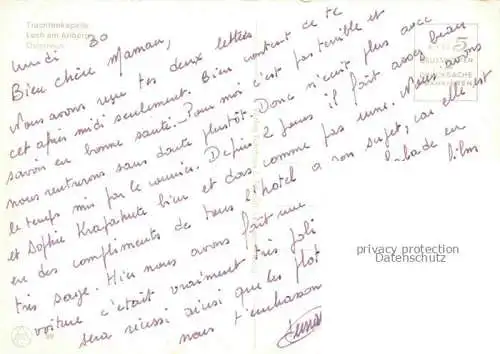 Trachtenkapelle
Lech am Arlberg
Österreich
lundi 30
Bien chère Maman,
Nous avons reçu tes deux lettres
cet après midi seulement. Bien content de te
savoir en bonne santé. Pour moi c'est pas terrible et
nous rentrerons sans doute plustôt. Donc n'écrit plus avec
le temps mis par le courrier. Depuis 2 jours il fait assez beau
et Sophie bien et dors comme pas une. Nous avons
eu des compliments de tous l'hôtel a son sujet, car elle est
très sage. Hier nous avons fait une balade en
voiture c'était vraiment très joli film
sera réussi ainsi que les
nous t'embrassons
privacy protection
Datenschutz